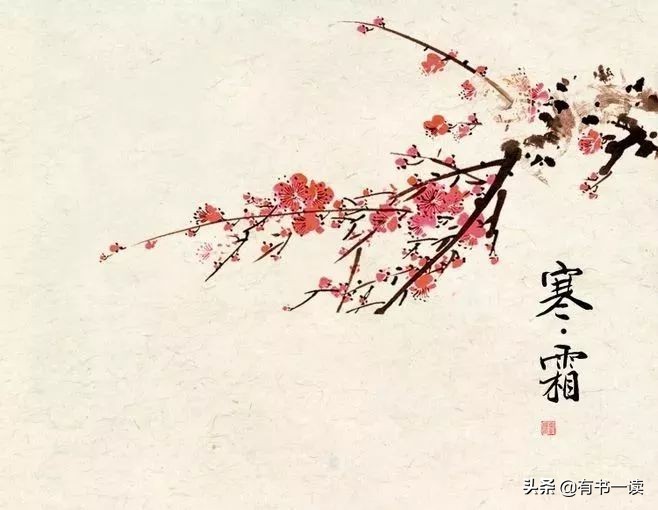 寒·霜
头条 @有书一读